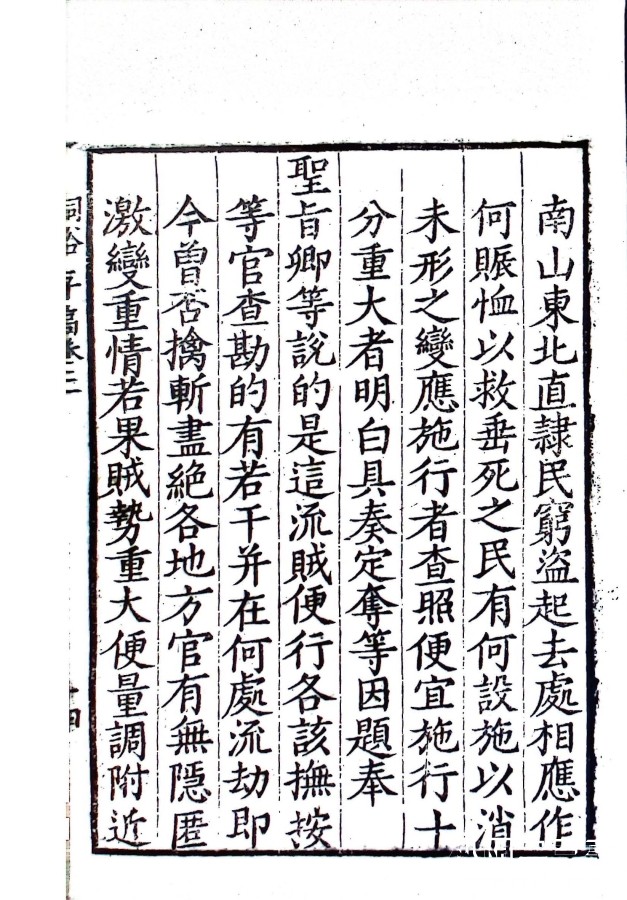 南山東北直隸民窮盜起去處相應作
何賑恤以救垂死之民有何設施以消
未形之變應施行者查照便宜施行十
分重大者明白具奏定奪等因題奉
聖旨卿等說的是這流賊便行各該撫按
等官查勘的有若干并在何處流劫即
今曾否擒斬盡絕各地方官有無隱匿
激變重情若果賊勢重大便量調附近